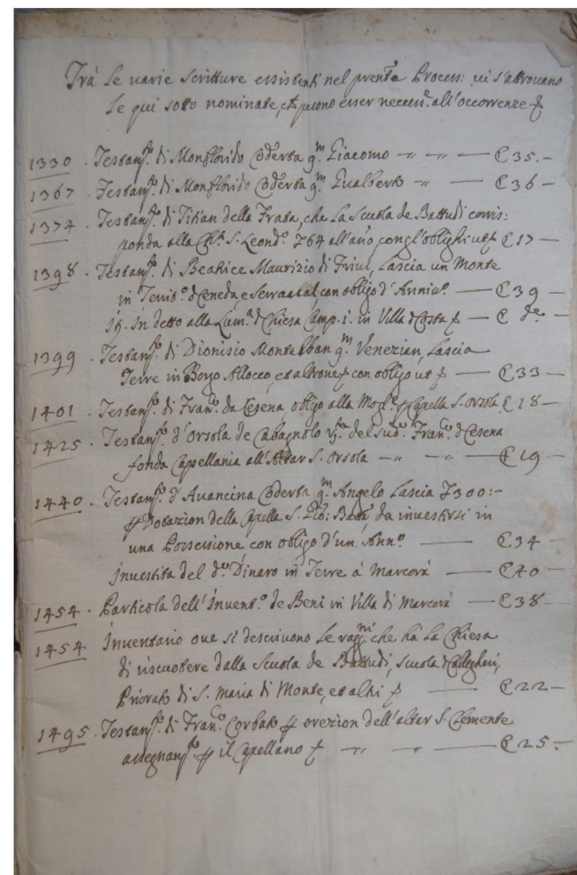 Trà le varie scritture essistenti nel prente Process: vi s'attrovano
le qui sotto nominate, ch puono esser necess.e all'occorrenze
1330 . Testam.to di Monflorido Coderta q.m Giacomo — C 35 . —
1367 . Testam.to di Monflorido Coderta q.m Gualberto — C 36 —
1374 . Testam.to di Titian della Frata, che la Scuola de Battudi corris:
ponda alla Ch.a S. Leond.o £64 all'año, con gl'oblighi ut C 17 —
1398 . Testam.to di Beatrice Maurizio di Friul, lascia un Monte
in Territ.o di Ceneda e Serraval con obligo d'Anniv.o — C 39 —
in detto alla Lum.a d Chiesa Camp. i. in Villa d Costa — C d.o —
1399 . Testam.to di Dionisio Montalban q.m Venezian lascia
Terre in Borgo Allocco, et altrove con obligo ut — C 33 —
1401 . Testam.to di Fran.co da Cesena obligo alla Mog.e Capella S. Orsola C 18 —
1425 . Testam.to d'Orsola de Cabagnolo del sud.o Fran.co d Cesena
fonda Capellania all'Altar S. Orsola — C 19 —
1440 . Testam.to d'Avancina Coderta q.m Angelo lascia £300 : —
Dotazion della Capella S. Gio: Batta, da investirsi in
una Possessione con obligo d'un Ann.o — C 34 —
Investita del d.o Dinaro in Terre à Marcorà — C 40 —
1454 . Particola dell'Invent.o de Beni in Villa di Marcorà — C 38 —
1454 . Inventario ove si descrivono le rag.ni che hà la Chiesa
di riscuotere dalla Scuola de Battudi, Scuola d Callegheri,
Priorato di S. Maria di Monte, et altri — C 22 —
1495 . Testam.to di Fran.co Corbato erezion dell'altar S. Clemente
assegnam.to il Capellano — C 25 . —